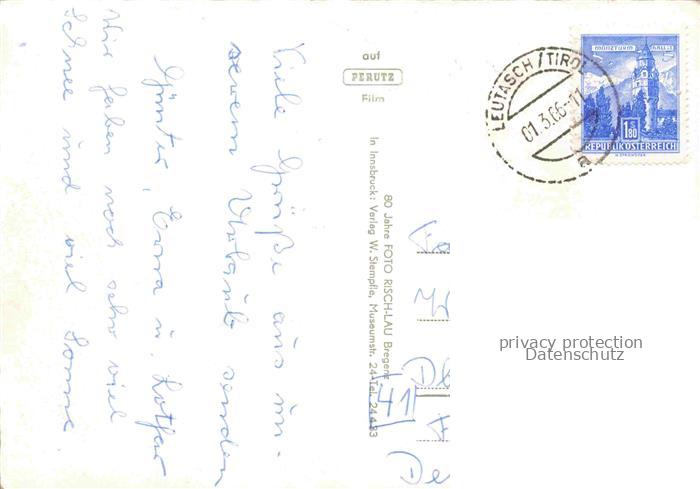 Viele Grüße aus un-
serem Urlaub senden
Günter, Erna u. Lothar
Wir haben noch sehr viel
Schnee und viel Sonne
auf
PERUTZ
Film
80 Jahre FOTO RISCH-LAU Bregenz
In Innsbruck: Verlag W. Stempfle, Museumstr. 24-Tel. 24433
LEUTASCH/TIROL
01.3.66-11
a
MÜNZTURM HALL I.T.
1.80
S
REPUBLIK ÖSTERREICH
41
privacy protection
Datenschutz